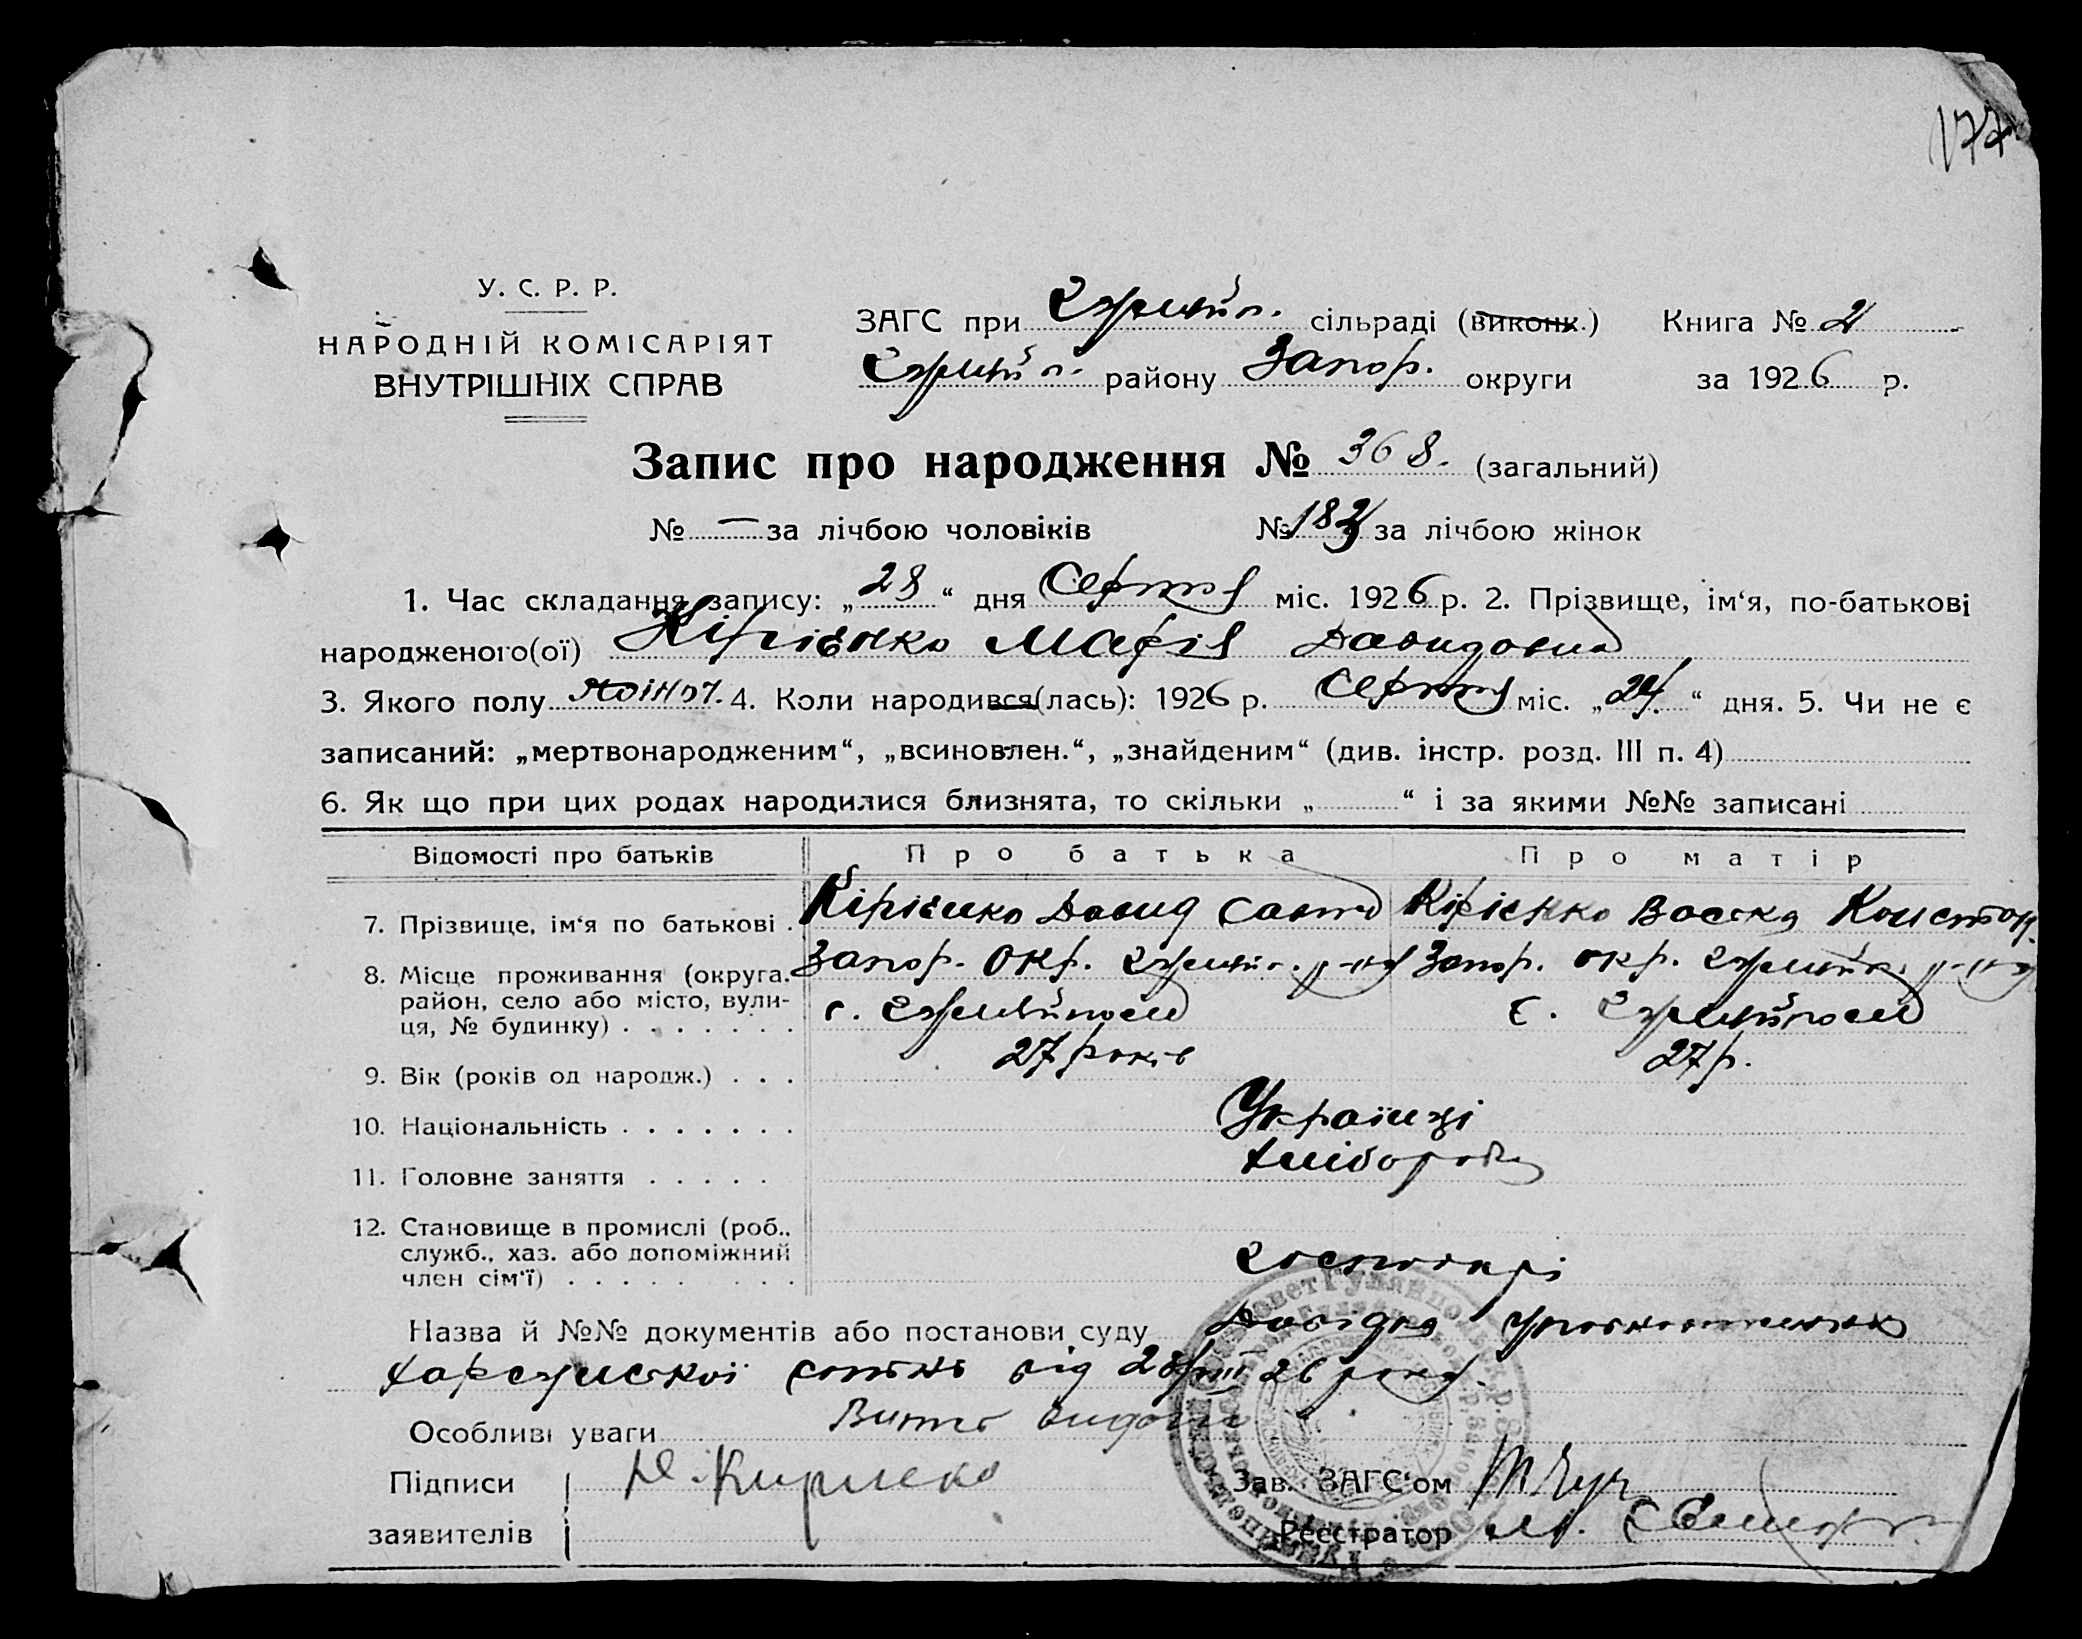 177
У. С. Р. Р.
НАРОДНІЙ КОМІСАРІЯТ
ВНУТРІШНІХ СПРАВ
ЗАГС при Гуляйп. сільраді (виконк.) Книга № 2
Гуляйп. району Запор. округи за 1926 р.
Запис про народження № 368. (загальний)
№ — за лічбою чоловіків № 182 за лічбою жінок
1. Час складання запису: „28“ дня Серпня міс. 1926 р. 2. Прізвище, ім‘я, по-батькові
народженого(ої) Кірієнко Марія Давидовна
3. Якого полу жіноч. 4. Коли народився(лась): 1926 р. Серпня міс. „24“ дня. 5. Чи не є
записаний: „мертвонародженим“, „всиновлен.“, „знайденим“ (див. інстр. розд. III п. 4)
6. Як що при цих родах народилися близнята, то скільки „ “ і за якими №№ записані
Відомості про батьків Про батька Про матір
7. Прізвище, ім‘я по батькові . Кірієнко Давид Савов Кірієнко Константин.
8. Місце проживання (округа, район, село або місто, вулиця, № будинку) Запор. окр. Гуляйп. р-ну Запор. окр. Гуляйп. р-ну
с. Гуляйполе с. Гуляйполе
9. Вік (років од народж.) . . . 27 років 27 р.
10. Національність . . . . . . . Українці
11. Головне заняття . . . . . Хлібороби
12. Становище в промислі (роб., служб., хаз. або допоміжний член сім‘ї) Господарі
Назва й №№ документів або постанови суду Довідка
сотні від 28/VIII 26 року.
Особливі уваги Витяг видано
Підписи Д. Кириєко Зав. ЗАГС‘ом
заявителів Реєстратор